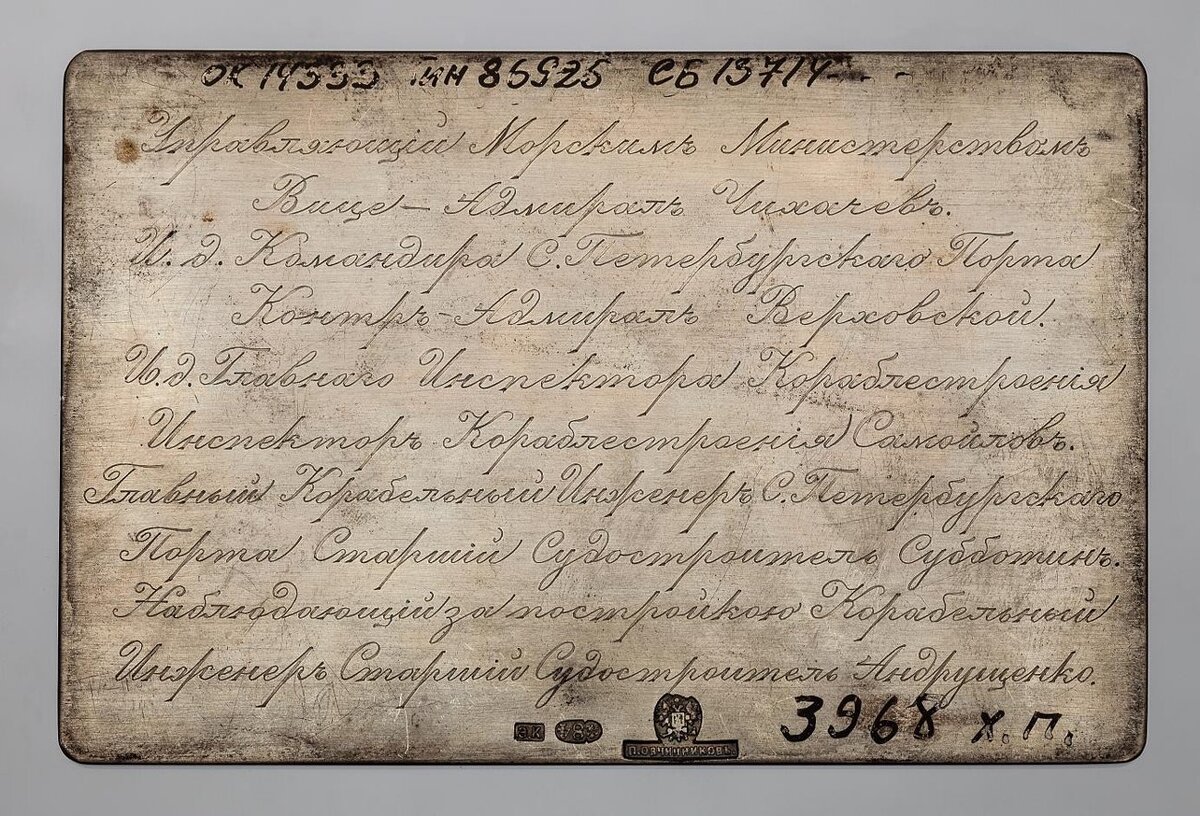 ОК 14393 ГИН 86925 СБ 13714
Управляющій Морскимъ Министерствомъ
Вице-Адмиралъ Чихачевъ.
И. д. Командира С. Петербургскаго Порта
Контръ-Адмиралъ Верховской.
И. д. Главнаго Инспектора Кораблестроенія
Инспекторъ Кораблестроенія Самойловъ.
Главный Корабельный Инженеръ С. Петербургскаго
Порта Старшій Судостроитель Субботинъ.
Наблюдающій за постройкою Корабельный
Инженеръ Старшій Судостроитель Андрущенко.
П.ОВЧИННИКОВЪ
3968 Х.П.